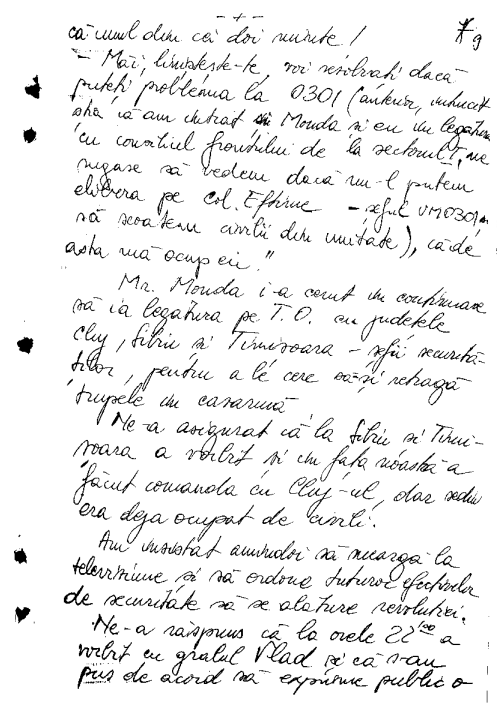 - 7 -
7 9
că unul din cei doi minte!
- Măi, liniștește-te, voi rezolvați dacă
puteți problema la 0301 (anterior,
știa că am intrat și Monda și eu în legătura
cu consiliul frontului de la sectorul ne
rugase să vedem dacă nu-l putem
elibera pe col. Eftime - șeful UM0301
să scoatem civilii din unitate), că de
asta mă ocup eu."
Mr. Monda i-a cerut în continuare
să ia legătura pe T.O. cu județele
Cluj, Sibiu și Timișoara - șefii securită-
ților, pentru a le cere să-și retragă
trupele în cazarmă
Ne-a asigurat că la Sibiu și Timi-
șoara a vorbit și în fața noastră a
făcut comanda cu Cluj-ul, dar sediu
era deja ocupat de civili.
Am insistat amîndoi să meargă la
televiziune și să ordone tuturor efectivelor
de securitate să se alăture revoluției.
Ne-a răspuns că la orele 22⁰⁰ a
vorbit cu gralul Vlad și că s-au
pus de acord să exprime public o